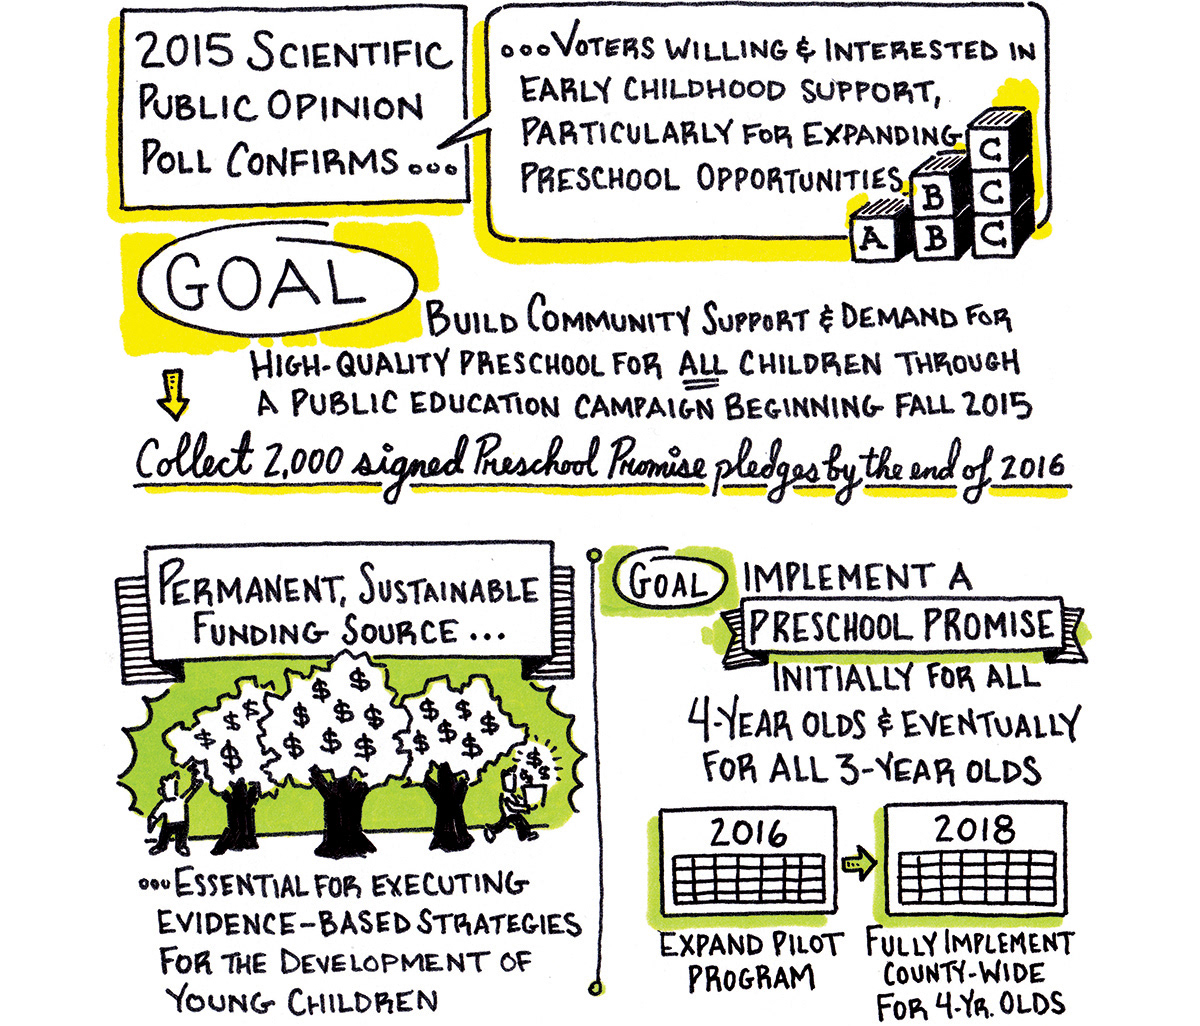 2015 SCIENTIFIC
PUBLIC OPINION
POLL CONFIRMS...
...VOTERS WILLING & INTERESTED IN
EARLY CHILDHOOD SUPPORT,
PARTICULARLY FOR EXPANDING
PRESCHOOL OPPORTUNITIES.
C
B C
A B C
GOAL
BUILD COMMUNITY SUPPORT & DEMAND FOR
HIGH-QUALITY PRESCHOOL FOR ALL CHILDREN THROUGH
A PUBLIC EDUCATION CAMPAIGN BEGINNING FALL 2015
Collect 2,000 signed Preschool Promise pledges by the end of 2016
PERMANENT, SUSTAINABLE
FUNDING SOURCE...
$ $ $ $ $ $ $ $ $ $ $ $ $ $ $ $ $ $ $ $
...ESSENTIAL FOR EXECUTING
EVIDENCE-BASED STRATEGIES
FOR THE DEVELOPMENT OF
YOUNG CHILDREN
GOAL IMPLEMENT A
PRESCHOOL PROMISE
INITIALLY FOR ALL
4-YEAR OLDS & EVENTUALLY
FOR ALL 3-YEAR OLDS
2016
EXPAND PILOT
PROGRAM
2018
FULLY IMPLEMENT
COUNTY-WIDE
FOR 4-YR. OLDS